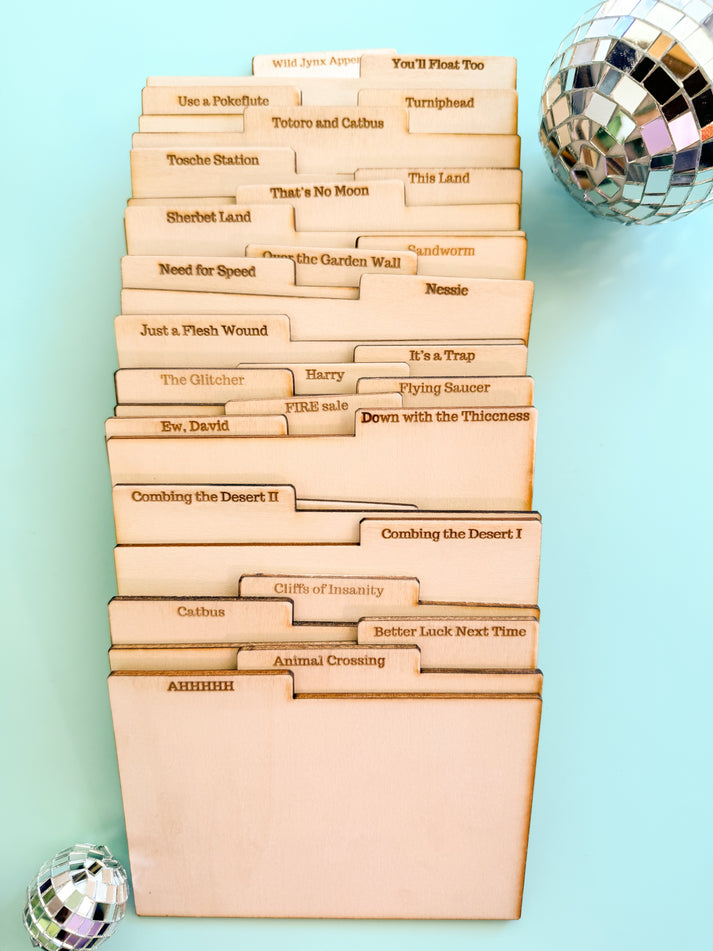 Wild Jynx Appea
You'll Float Too
Use a Pokeflute
Turniphead
Totoro and Catbus
Tosche Station
This Land
That's No Moon
Sherbet Land
Sandworm
Over the Garden Wall
Need for Speed
Nessie
Just a Flesh Wound
It's a Trap
Harry
The Glitcher
Flying Saucer
FIRE sale
Down with the Thiccness
Ew, David
Combing the Desert II
Combing the Desert I
Cliffs of Insanity
Catbus
Better Luck Next Time
Animal Crossing
AHHHHH